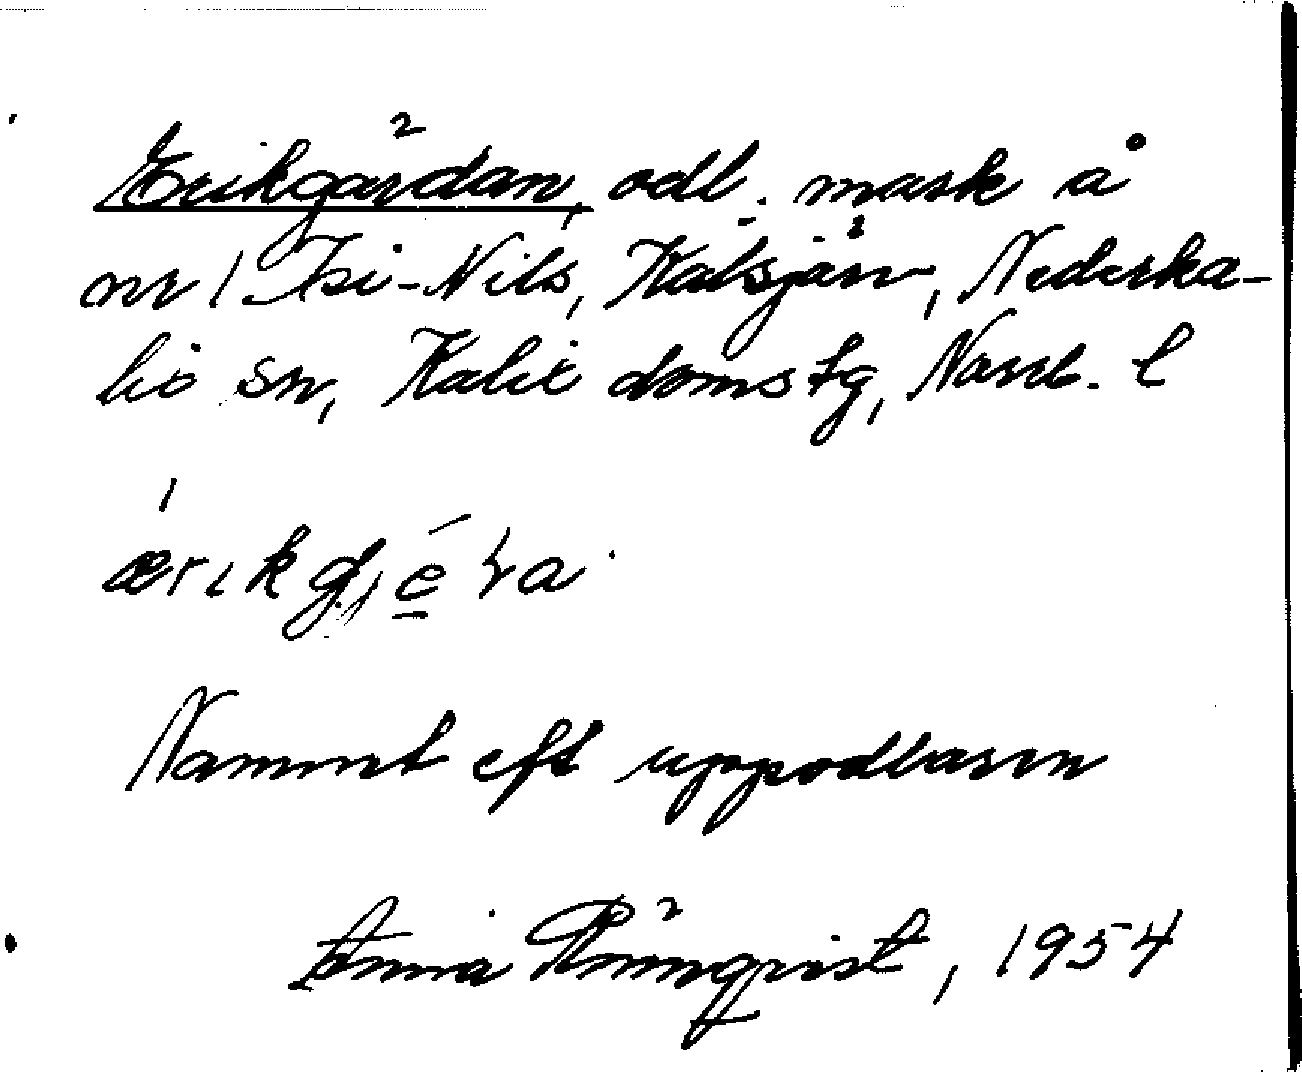 Erikgärdan, odl. mark å
nr 1 Isi-Nils, Kälsjärv, Nederka-
lix sn, Kalix domstg, Norrb. l
Namnet eft uppodlaren
Anna Rönnqvist, 1954